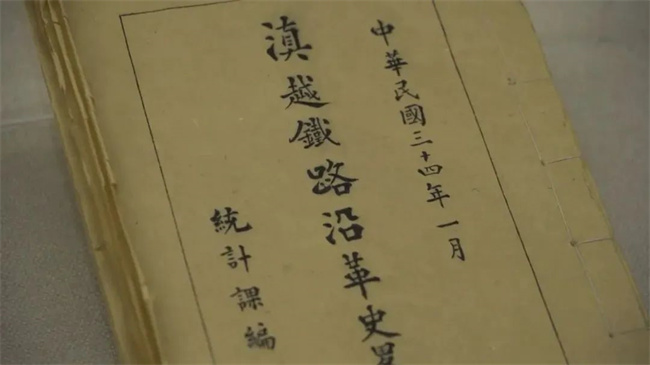 中華民國三十四年一月
滇越鐵路沿革史
統計課編